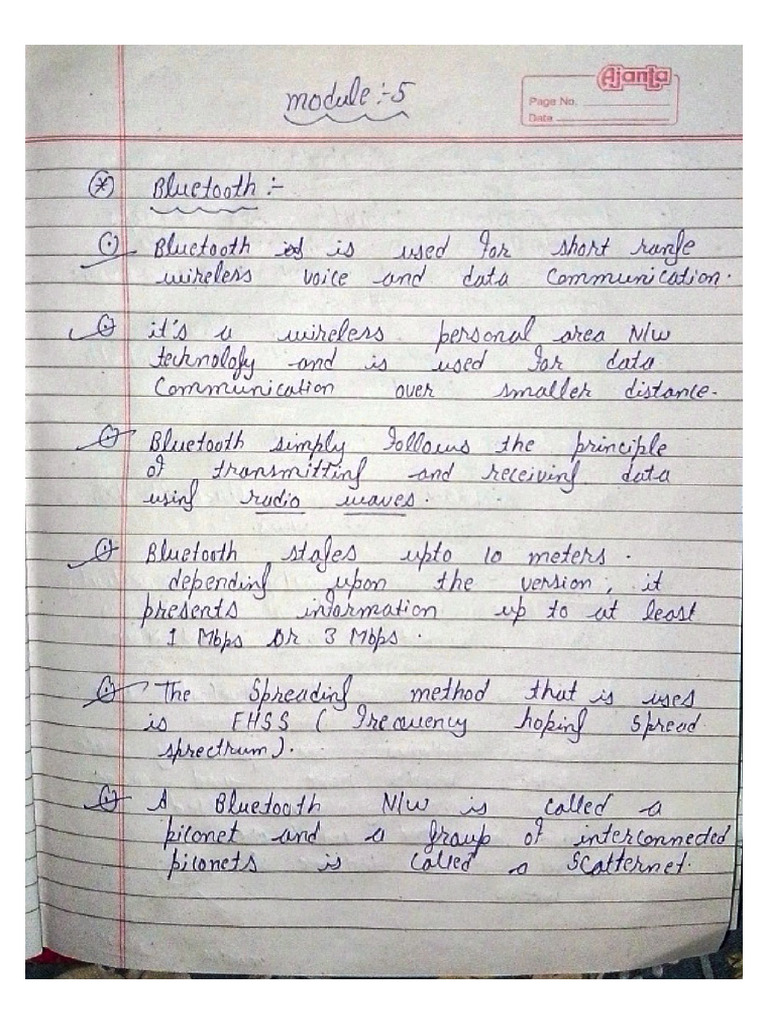 Ajanta
Page No.
Date
module:-5
Bluetooth :-
Bluetooth is used for short range
wireless voice and data communication.
it's a wireless personal area N/w
technology and is used for data
Communication over smaller distance.
Bluetooth simply follows the principle
of transmitting and receiving data
using radio waves.
Bluetooth stages upto 10 meters.
depending upon the version, it
presents information up to at least
1 Mbps or 3 Mbps.
The Spreading method that is uses
is FHSS (Frequency hoping Spread
sprectrum).
A Bluetooth N/w is called a
piconet and a group of interconnected
piconets is called a Scatternet.